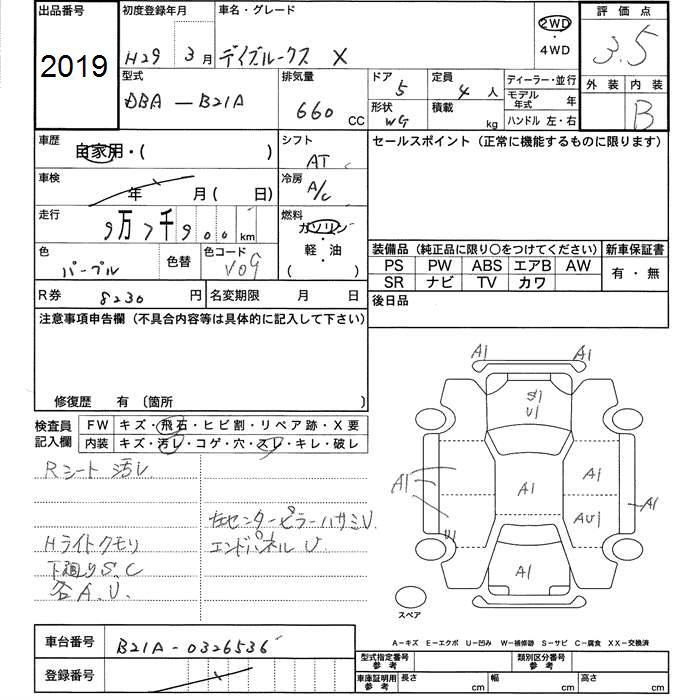 出品番号 初度登録年月 車名・グレード 評価点
2019 H29 3月 デイズルークス X 2WD・4WD 3.5
型式 排気量 ドア 定員 ディーラー・並行 外装 内装
DBA-B21A 660 CC 5 4人 モデル年式 年 B
形状 WG 積載 kg ハンドル 左・右
車歴 自家用・( ) シフト AT セールスポイント (正常に機能するものに限ります)
車検 年 月( 日) 冷房 A/C
走行 9万7千900km 燃料 ガソリン・軽・油 ( )
色 パープル 色替 色コード V09
装備品 (純正品に限り○をつけてください) 新車保証書
PS PW ABS エアB AW 有・無
SR ナビ TV カワ
R券 8230円 名変期限 月 日 後日品
注意事項申告欄 (不具合内容等は具体的に記入して下さい)
修復歴 有 (箇所
検査員記入欄 FW キズ・飛石・ヒビ割・リペア跡・X要
内装 キズ・汚レ・コゲ・穴・スレ・キレ・破レ
A1 A1
S1
U1
A1 A1 A1 A1
U1 AU1
A1
スペア
Rシート 汚レ
左センターピラーハサミU.
Hライトクモリ エンドパネル U
下廻りS.C
各A.U.
車台番号 B21A-0326536
登録番号
A-キズ E-エクボ U-凹み W-補修跡 S-サビ C-腐食 XX-交換済
型式指定番号 参考 類別区分番号 参考
車庫証明用 参考 長さ cm 幅 cm 高さ cm